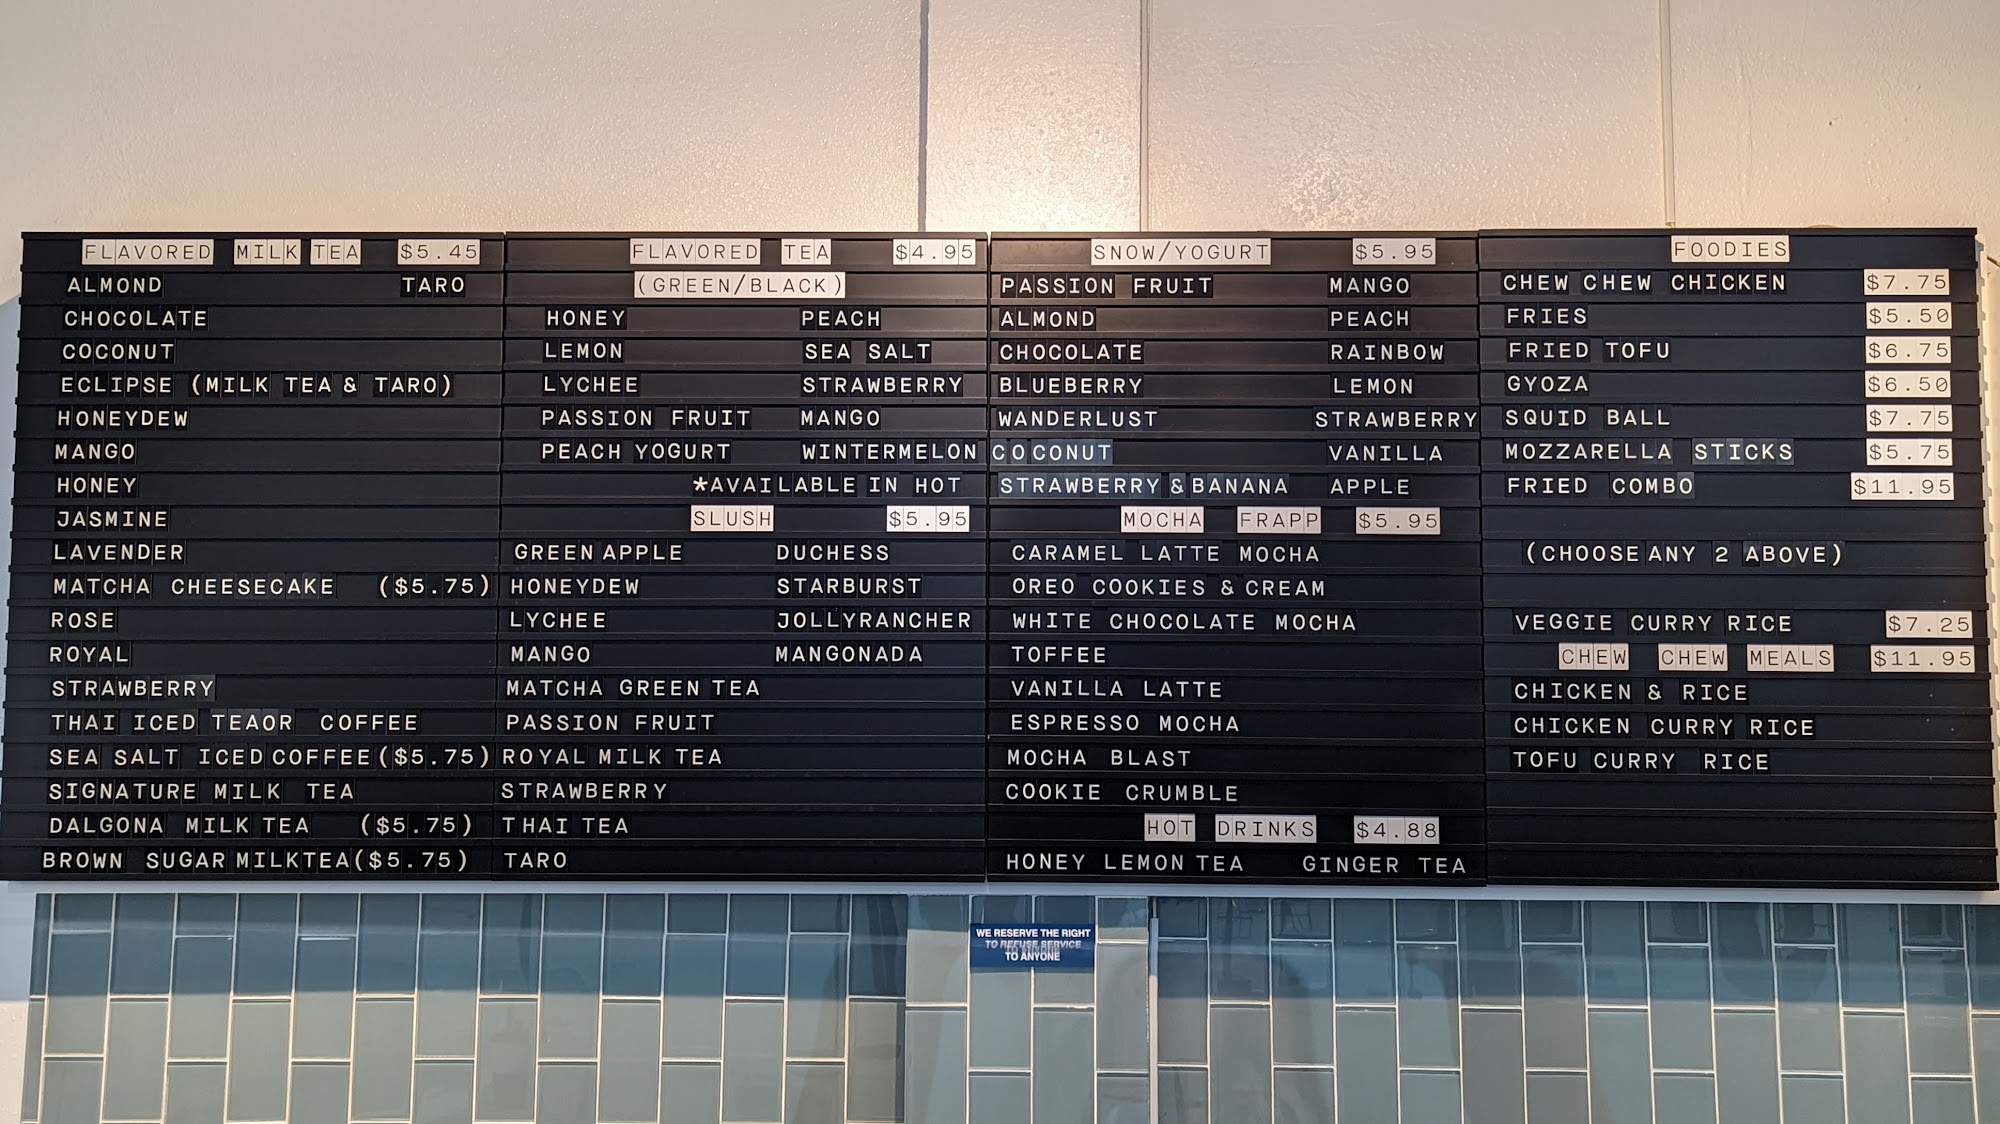 FLAVORED MILK TEA $5.45
ALMOND TARO
CHOCOLATE
COCONUT
ECLIPSE (MILK TEA & TARO)
HONEYDEW
MANGO
HONEY
JASMINE
LAVENDER
MATCHA CHEESECAKE ($5.75)
ROSE
ROYAL
STRAWBERRY
THAI ICED TEAOR COFFEE
SEA SALT ICED COFFEE ($5.75)
SIGNATURE MILK TEA
DALGONA MILK TEA ($5.75)
BROWN SUGAR MILKTEA($5.75)
FLAVORED TEA $4.95
(GREEN/BLACK)
HONEY PEACH
LEMON SEA SALT
LYCHEE STRAWBERRY
PASSION FRUIT MANGO
PEACH YOGURT WINTERMELON
*AVAILABLE IN HOT
SLUSH $5.95
GREEN APPLE DUCHESS
HONEYDEW STARBURST
LYCHEE JOLLYRANCHER
MANGO MANGONADA
MATCHA GREEN TEA
PASSION FRUIT
ROYAL MILK TEA
STRAWBERRY
THAI TEA
TARO
SNOW/YOGURT $5.95
PASSION FRUIT MANGO
ALMOND PEACH
CHOCOLATE RAINBOW
BLUEBERRY LEMON
WANDERLUST STRAWBERRY
COCONUT VANILLA
STRAWBERRY & BANANA APPLE
MOCHA FRAPP $5.95
CARAMEL LATTE MOCHA
OREO COOKIES & CREAM
WHITE CHOCOLATE MOCHA
TOFFEE
VANILLA LATTE
ESPRESSO MOCHA
MOCHA BLAST
COOKIE CRUMBLE
HOT DRINKS $4.88
HONEY LEMON TEA GINGER TEA
FOODIES
CHEW CHEW CHICKEN $7.75
FRIES $5.50
FRIED TOFU $6.75
GYOZA $6.50
SQUID BALL $7.75
MOZZARELLA STICKS $5.75
FRIED COMBO $11.95
(CHOOSE ANY 2 ABOVE)
VEGGIE CURRY RICE $7.25
CHEW CHEW MEALS $11.95
CHICKEN & RICE
CHICKEN CURRY RICE
TOFU CURRY RICE
WE RESERVE THE RIGHT
TO REFUSE SERVICE
TO ANYONE